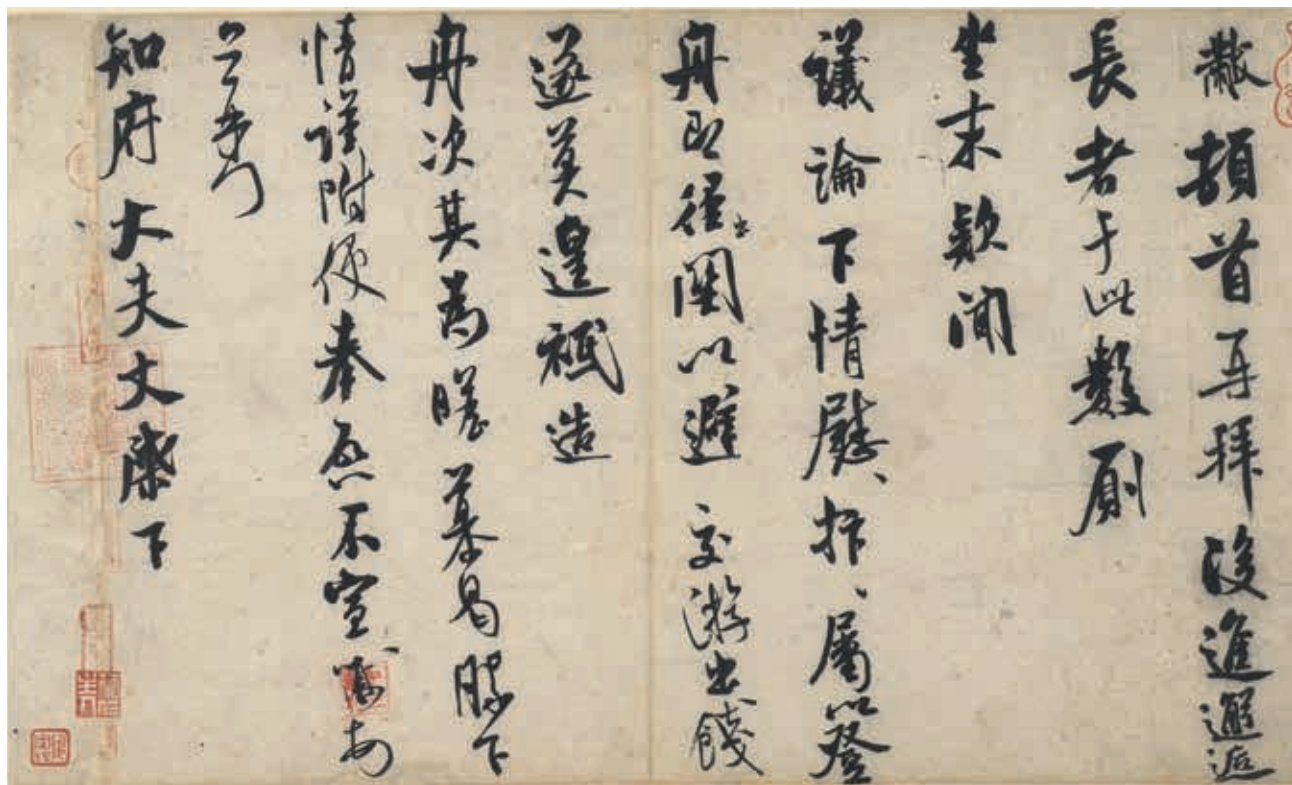 黻頓首再拜後進邂逅
長者于此數廁
坐末款聞
議論下情慰、抃、屬以登
舟即徑出關以避交游出餞
遂莫遑祗造
舟次其為瞻慕曷勝下
情謹附便奉啟不宣黻
知府大夫丈棨下